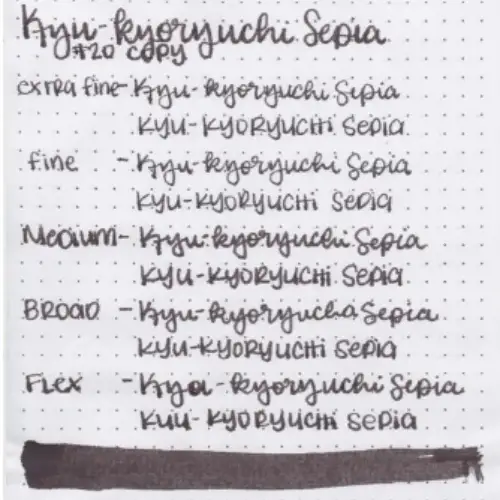 Kyu-kyoryuchi Sepia
#20 copy
extra fine - Kyu-kyoryuchi Sepia
KYU-KYORYUCHI SEPIA
fine - Kyu-kyoryuchi Sepia
KYU-KYORYUCHI SEPIA
Medium - Kyu-kyoryuchi Sepia
KYU-KYORYUCHI SEPIA
BROAD - Kyu-kyoryucha Sepia
KYU-KYORYUCHI SEPIA
FLEX - Kya-kyoryuchi Sepia
KUU-KYORYUCHI SEPIA